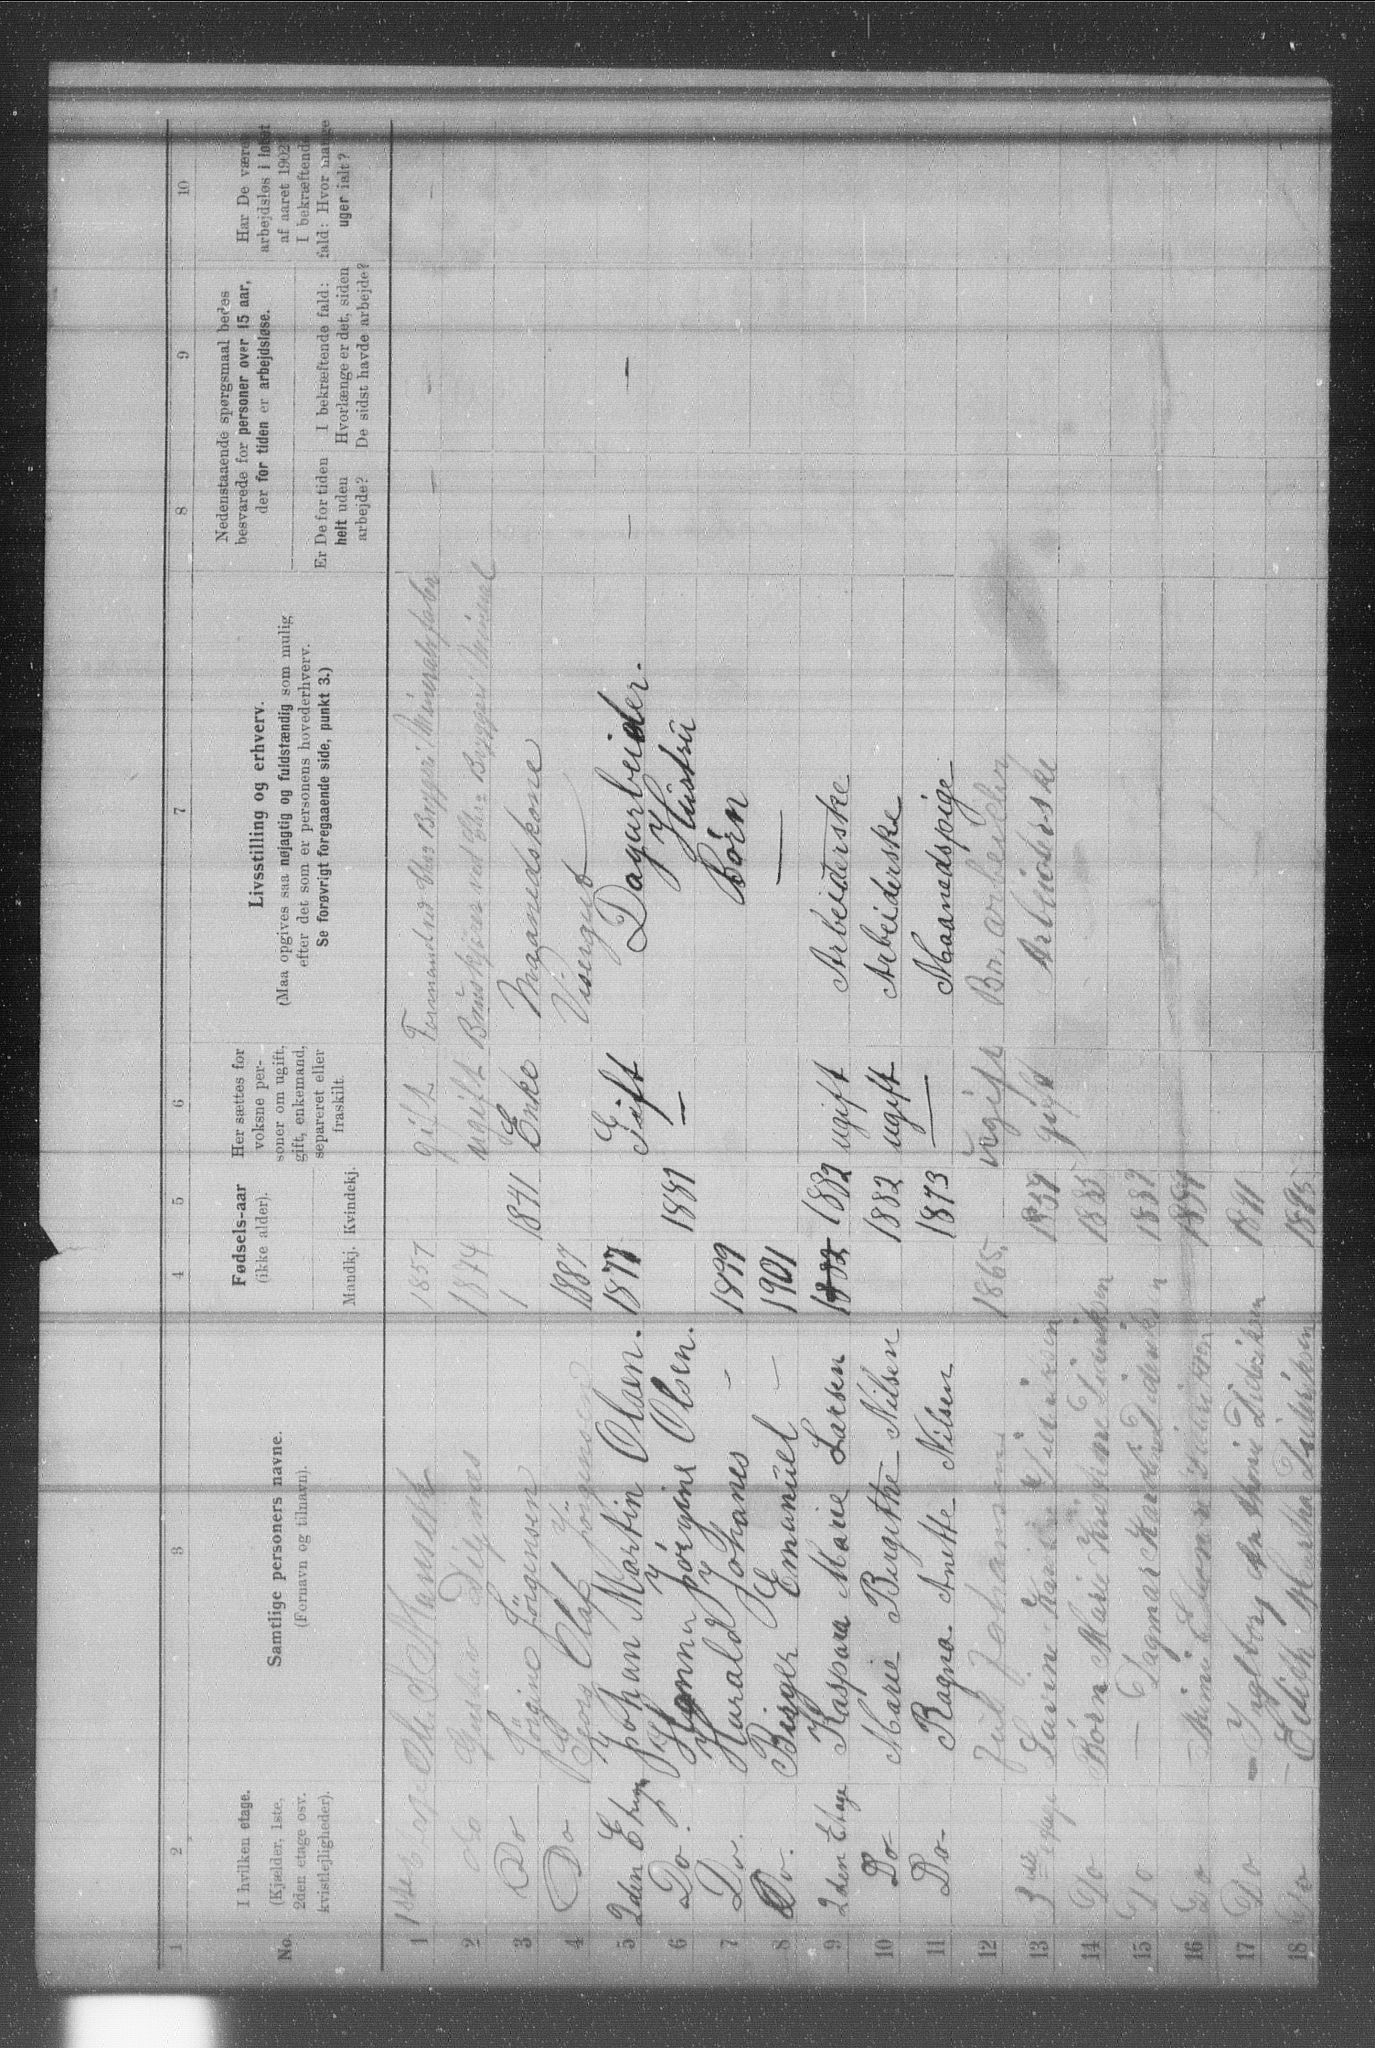 1 2 3 4 5 6 7 8 9 10
No.
I hvilken etage.
(Kjælder, 1ste,
2den etage osv.
kvistlejligheder).
Samtlige personers navne.
(Fornavn og tilnavn).
Fødsels-aar
(ikke alder).
Mandkj. Kvindekj.
Her sættes for
voksne per-
soner om ugift,
gift, enkemand,
separeret eller
fraskilt.
Livsstilling og erhverv.
(Maa opgives saa nøjagtig og fuldstændig som mulig
efter det som er personens hovederhverv.
Se forøvrigt foregaaende side, punkt 3.)
Nedenstaaende spørgsmaal bedes
besvarede for personer over 15 aar,
der for tiden er arbejdsløse.
Er De for tiden
helt uden
arbejde?
I bekræftende fald:
Hvorlænge er det, siden
De sidst havde arbejde?
Har De været
arbejdsløs i løbet
af aaret 1902?
I bekræftende
fald: Hvor mange
uger ialt?
1 1857 gift Formand ved — — —
2 do Gustav 1874 ugift
3 Do Jörgine Jörgensen 1 1841 Enke Maanedskone
4 Do Georg Olaf Jörgensen 1887 Visergut
5 2den Etage Johan Martin Olsen. 1877 Gift Dagarbeider. — —
6 Do. Jörgine Olsen. 1881 — Hustru
7 Do. Harald Johanes — 1899 Börn
8 Do. Birger Emanuel — 1901 —
9 2den Etage Kaspara Marie Larsen 1882 1882 ugift Arbeiderske
10 Do Marie Birgithe Nilsen 1882 ugift Arbeiderske
11 Do Ragna Anette Nilsen 1873 — Maanedspige
12 Juhl Johansen 1865 ugift Br. arbeider
13 3die etage Didriksen 1859 gift Arbeiderske
14 Do Börn Marie Didriksen 1885
15 Do — Dagmar Didriksen 1887
16 Do — Didriksen
17 Do — Ingeborg Didriksen 1891
18 Do — Edith Martha Didriksen 1895